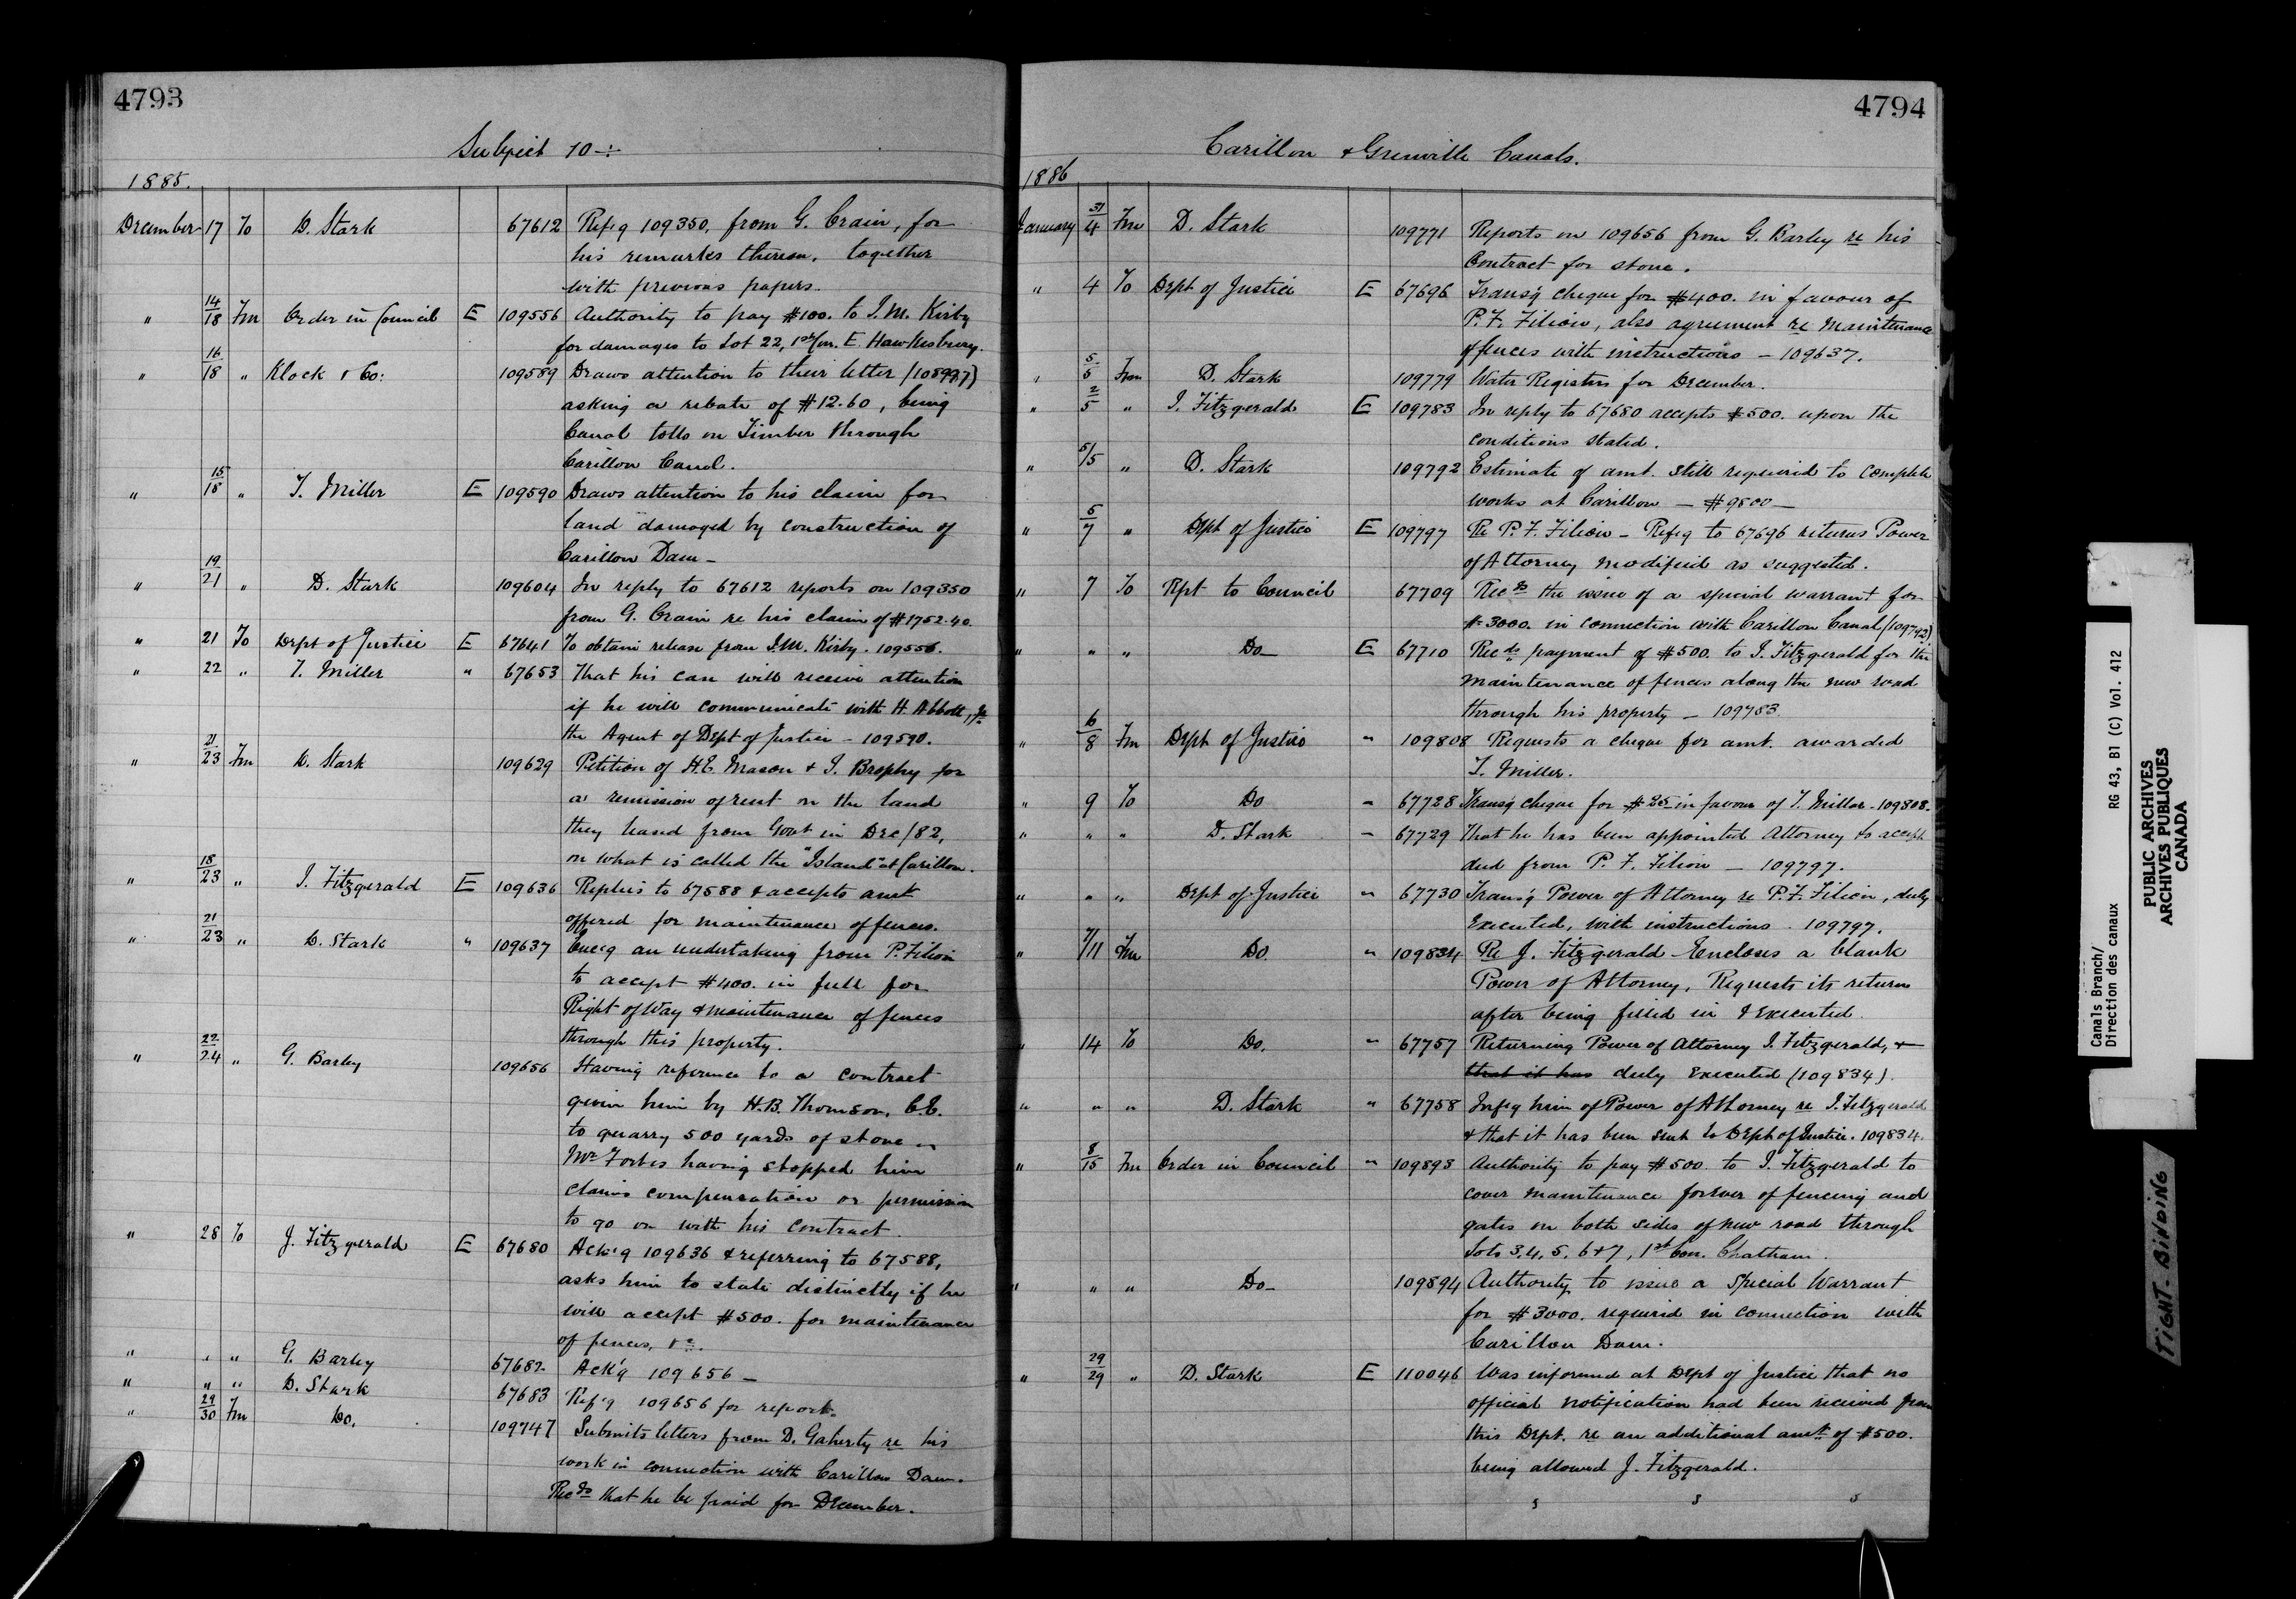 4793
Subject 10 -:-
1885.
December 17 To D. Stark 67612 Refg 109350, from G. Crain, for
his remarks thereon, together
with previous papers.
" 14/18 Fm Order in Council E 109556 Authority to pay $100. to J. M. Kirby
for damages to Lot 22, 1st Con. E. Hawkesbury.
" 16/18 " Klock & Co: 109589 Draws attention to their letter (108997)
asking a rebate of $12.60, being
Canal tolls on Timber through
Carillon Canal.
" 15/18 " T. Miller E 109590 Draws attention to his claim for
land damaged by construction of
Carillon Dam -
" 19/21 " D. Stark 109604 In reply to 67612 reports on 109350
from G. Crain re his claim of $1752.40.
" 21 To Dept of Justice E 67641 To obtain release from J.M. Kirby. 109556.
" 22 " T. Miller " 67653 That his case will receive attention
if he will communicate with H. Abbott, Jr.
the Agent of Dept of Justice - 109590.
" 21/23 Fm D. Stark 109629 Petition of H.E. Mason & J. Brophy for
a remission of rent on the land
they leased from Govt in Dec/82,
on what is called the "Island" at Carillon.
" 18/23 " J. Fitzgerald E 109636 Replies to 67588 & accepts amt
offered for maintenance of fences.
" 21/23 " D. Stark " 109637 Encg an undertaking from P. Filion
to accept $400. in full for
Right of Way & maintenance of fences
through this property.
" 22/24 " G. Barley 109656 Having reference to a contract
given him by H.B. Thomson, C.E.
to quarry 500 yards of stone -
Mr Forbes having stopped him
claims compensation or permission
to go on with his contract.
" 28 To J. Fitzgerald E 67680 Ack'g 109636 & referring to 67588,
asks him to state distinctly if he
will accept $500. for maintenance
of fences, &c.
" " " G. Barley 67682 Ack'g 109656 -
" " " D. Stark 67683 Ref'g 109656 for report.
" 29/30 Fm Do. 109747 Submits letters from D. Gaherty re his
work in connection with Carillon Dam.
Recds that he be paid for December.
4794
Carillon & Grenville Canals.
1886
January 31/4 Fm D. Stark 109771 Reports on 109656 from G. Barley re his
Contract for stone.
" 4 To Dept of Justice E 67696 Trans'g cheque for $400. in favour of
P. F. Filion, also agreement re Maintenance
of fences with instructions - 109637.
" 5/5 Fm D. Stark 109779 Water Registers for December.
" 2/5 " J. Fitzgerald E 109783 In reply to 67680 accepts $500. upon the
conditions stated.
" 5/5 " D. Stark 109792 Estimate of amt. still required to complete
works at Carillon - $9500 -
" 5/7 " Dept of Justice E 109797 Re P. F. Filion - Refg to 67696 returns Power
of Attorney modified as suggested.
" 7 To Rpt to Council 67709 Recds the issue of a special warrant for
$3000. in connection with Carillon Canal (109792)
" " " Do - E 67710 Recds payment of $500. to J. Fitzgerald for the
maintenance of fences along the new road
through his property - 109783.
" 6/8 Fm Dept of Justice " 109808 Requests a cheque for amt. awarded
T. Miller.
" 9 To Do " 67728 Trans'g cheque for $25 in favour of T. Miller - 109808.
" " " D. Stark " 67729 That he has been appointed Attorney to accept
deed from P. F. Filion - 109797.
" " " Dept of Justice " 67730 Trans'g Power of Attorney re P. F. Filion, duly
Executed, with instructions. 109797.
" 7/11 Fm Do. " 109834 Re J. Fitzgerald - Encloses a blank
Power of Attorney. Requests its return
after being filled in & Executed.
" 14 To Do. " 67757 Returning Power of Attorney J. Fitzgerald, &
that it has duly Executed (109834).
" " " D. Stark " 67758 Infg him of Power of Attorney re J. Fitzgerald
& that it has been sent to Dept of Justice. 109834.
" 8/15 Fm Order in Council " 109893 Authority to pay $500. to J. Fitzgerald to
cover maintenance forever of fencing and
gates on both sides of new road through
Lots 3, 4, 5, 6 & 7, 1st Con. Chatham.
" " " Do - 109894 Authority to issue a Special Warrant
for $3000. required in connection with
Carillon Dam.
" 29/29 " D. Stark E 110046 Was informed at Dept of Justice that no
official notification had been received from
this Dept. re an additional amt of $500.
being allowed J. Fitzgerald.
Canals Branch/
Direction des canaux RG 43, B1 (C) Vol. 412
PUBLIC ARCHIVES
ARCHIVES PUBLIQUES
CANADA
TIGHT BINDING